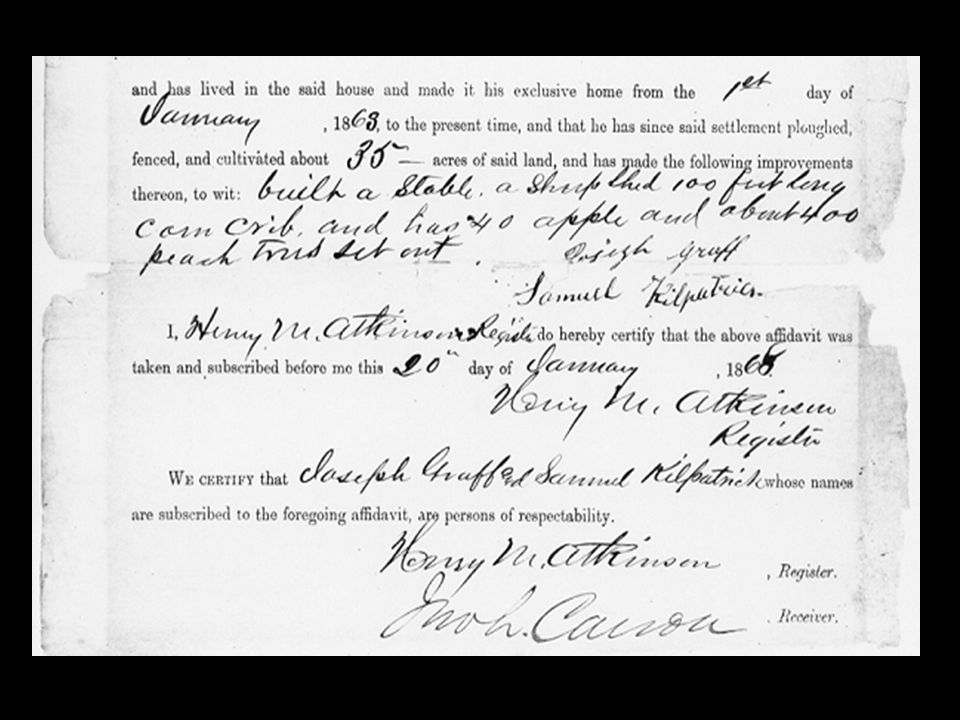 and has lived in the said house and made it his exclusive home from the 1st day of
January , 1863, to the present time, and that he has since said settlement ploughed,
fenced, and cultivated about 35 — acres of said land, and has made the following improvements
thereon, to wit: built a Stable, a Sheep Shed 100 feet long
corn crib, and has 40 apple and about 400
peach trees set out.
Joseph Graff
Samuel Kilpatrick
I, Henry M. Atkinson Register do hereby certify that the above affidavit was
taken and subscribed before me this 20th day of January , 1868.
Henry M. Atkinson
Register
WE CERTIFY that Joseph Graff and Samuel Kilpatrick whose names
are subscribed to the foregoing affidavit, are persons of respectability.
Henry M. Atkinson , Register.
Jno L. Carson , Receiver.